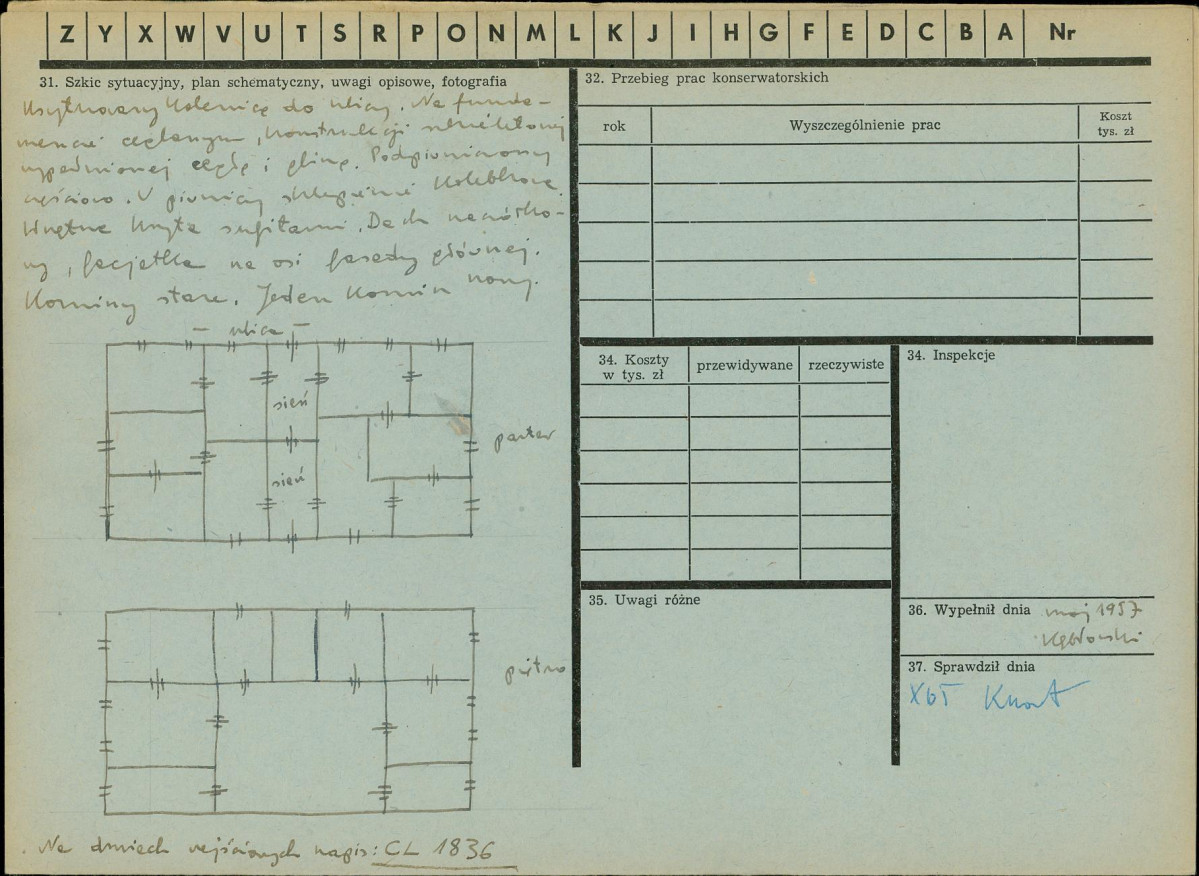 Z Y X W V U T S R P O N M L K J I H G F E D C B A Nr
31. Szkic sytuacyjny, plan schematyczny, uwagi opisowe, fotografia
Usytuowany kalenicą do ulicy. Na funda-
mencie ceglanym, konstrukcji szkieletowej
wypełnionej cegłą i gliną. Podpiwniczony
częściowo. W piwnicy sklepienie kolebkowe.
Wnętrze kryte sufitami. Dach naczółko-
wy, facjatka na osi fasady głównej.
Kominy stare. Jeden komin nowy.
— ulica —
sień
parter
sień
piętro
Na drzwiach wejściowych napis: CL 1836
32. Przebieg prac konserwatorskich
rok
Wyszczególnienie prac
Koszt
tys. zł
34. Koszty
w tys. zł
przewidywane
rzeczywiste
34. Inspekcje
35. Uwagi różne
36. Wypełnił dnia maj 1957
Kębłowski
37. Sprawdził dnia